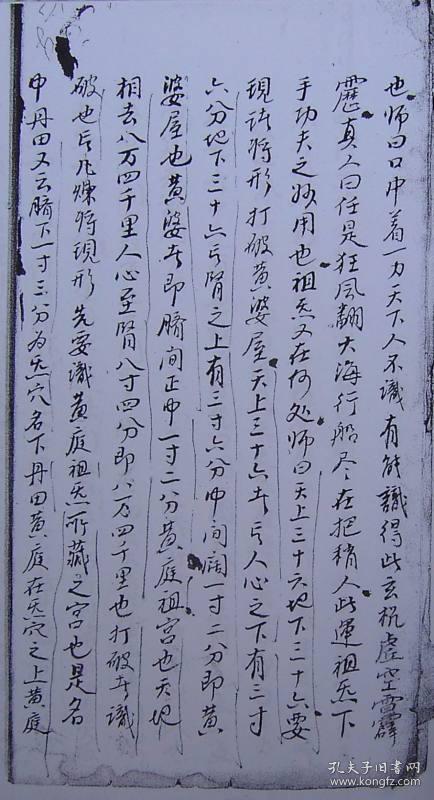 也师曰口中着一力天下人不識有能識得此玄机虚空雷霹
靂真人曰任是狂風翻大海行船尽在把稍人此運祖炁下
手功夫之妙用也祖炁又在何处师曰天上三十六地下三十六要
現此將形打破黄婆屋天上三十六者人心之下有三寸
六分地下三十六者腎之上有三寸六分中间阔一寸二分即黄
婆屋也黄婆者即臍间正中一寸二分黄庭祖宫也天地
相去八万四千里人心至腎八寸四分即八万四千里也打破者識
破也凡煉將現形先要識黄庭祖炁所藏之宫也是名
中丹田又云臍下一寸三分为炁穴名下丹田黄庭在炁穴之上黄庭
孔夫子旧书网
www.kongfz.com